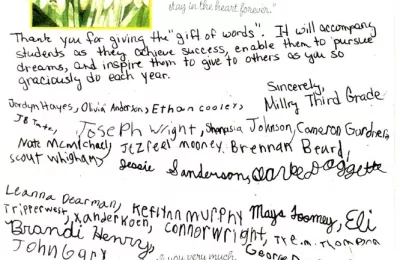 stay in the heart forever."
Thank you for giving the "gift of words". It will accompany
students as they achieve success, enable them to pursue
dreams, and inspire them to give to others as you so
graciously do each year.
Sincerely,
Millry Third Grade
Jordyn Hayes, Olivia Anderson, Ethan Cooley,
JB Tate, Joseph Wright, Shanasia Johnson, Cameron Gardner,
Nate McMichael, Jezreel Mooney, Brennan Beard,
scout whigham, Jessie Sanderson,
Leanna Dearman, Keflynn Murphy Maya Toomey, Eli
Tripperwest, Xander Koen, Connor Wright,
Brandi Henry,
John Gary
you very much